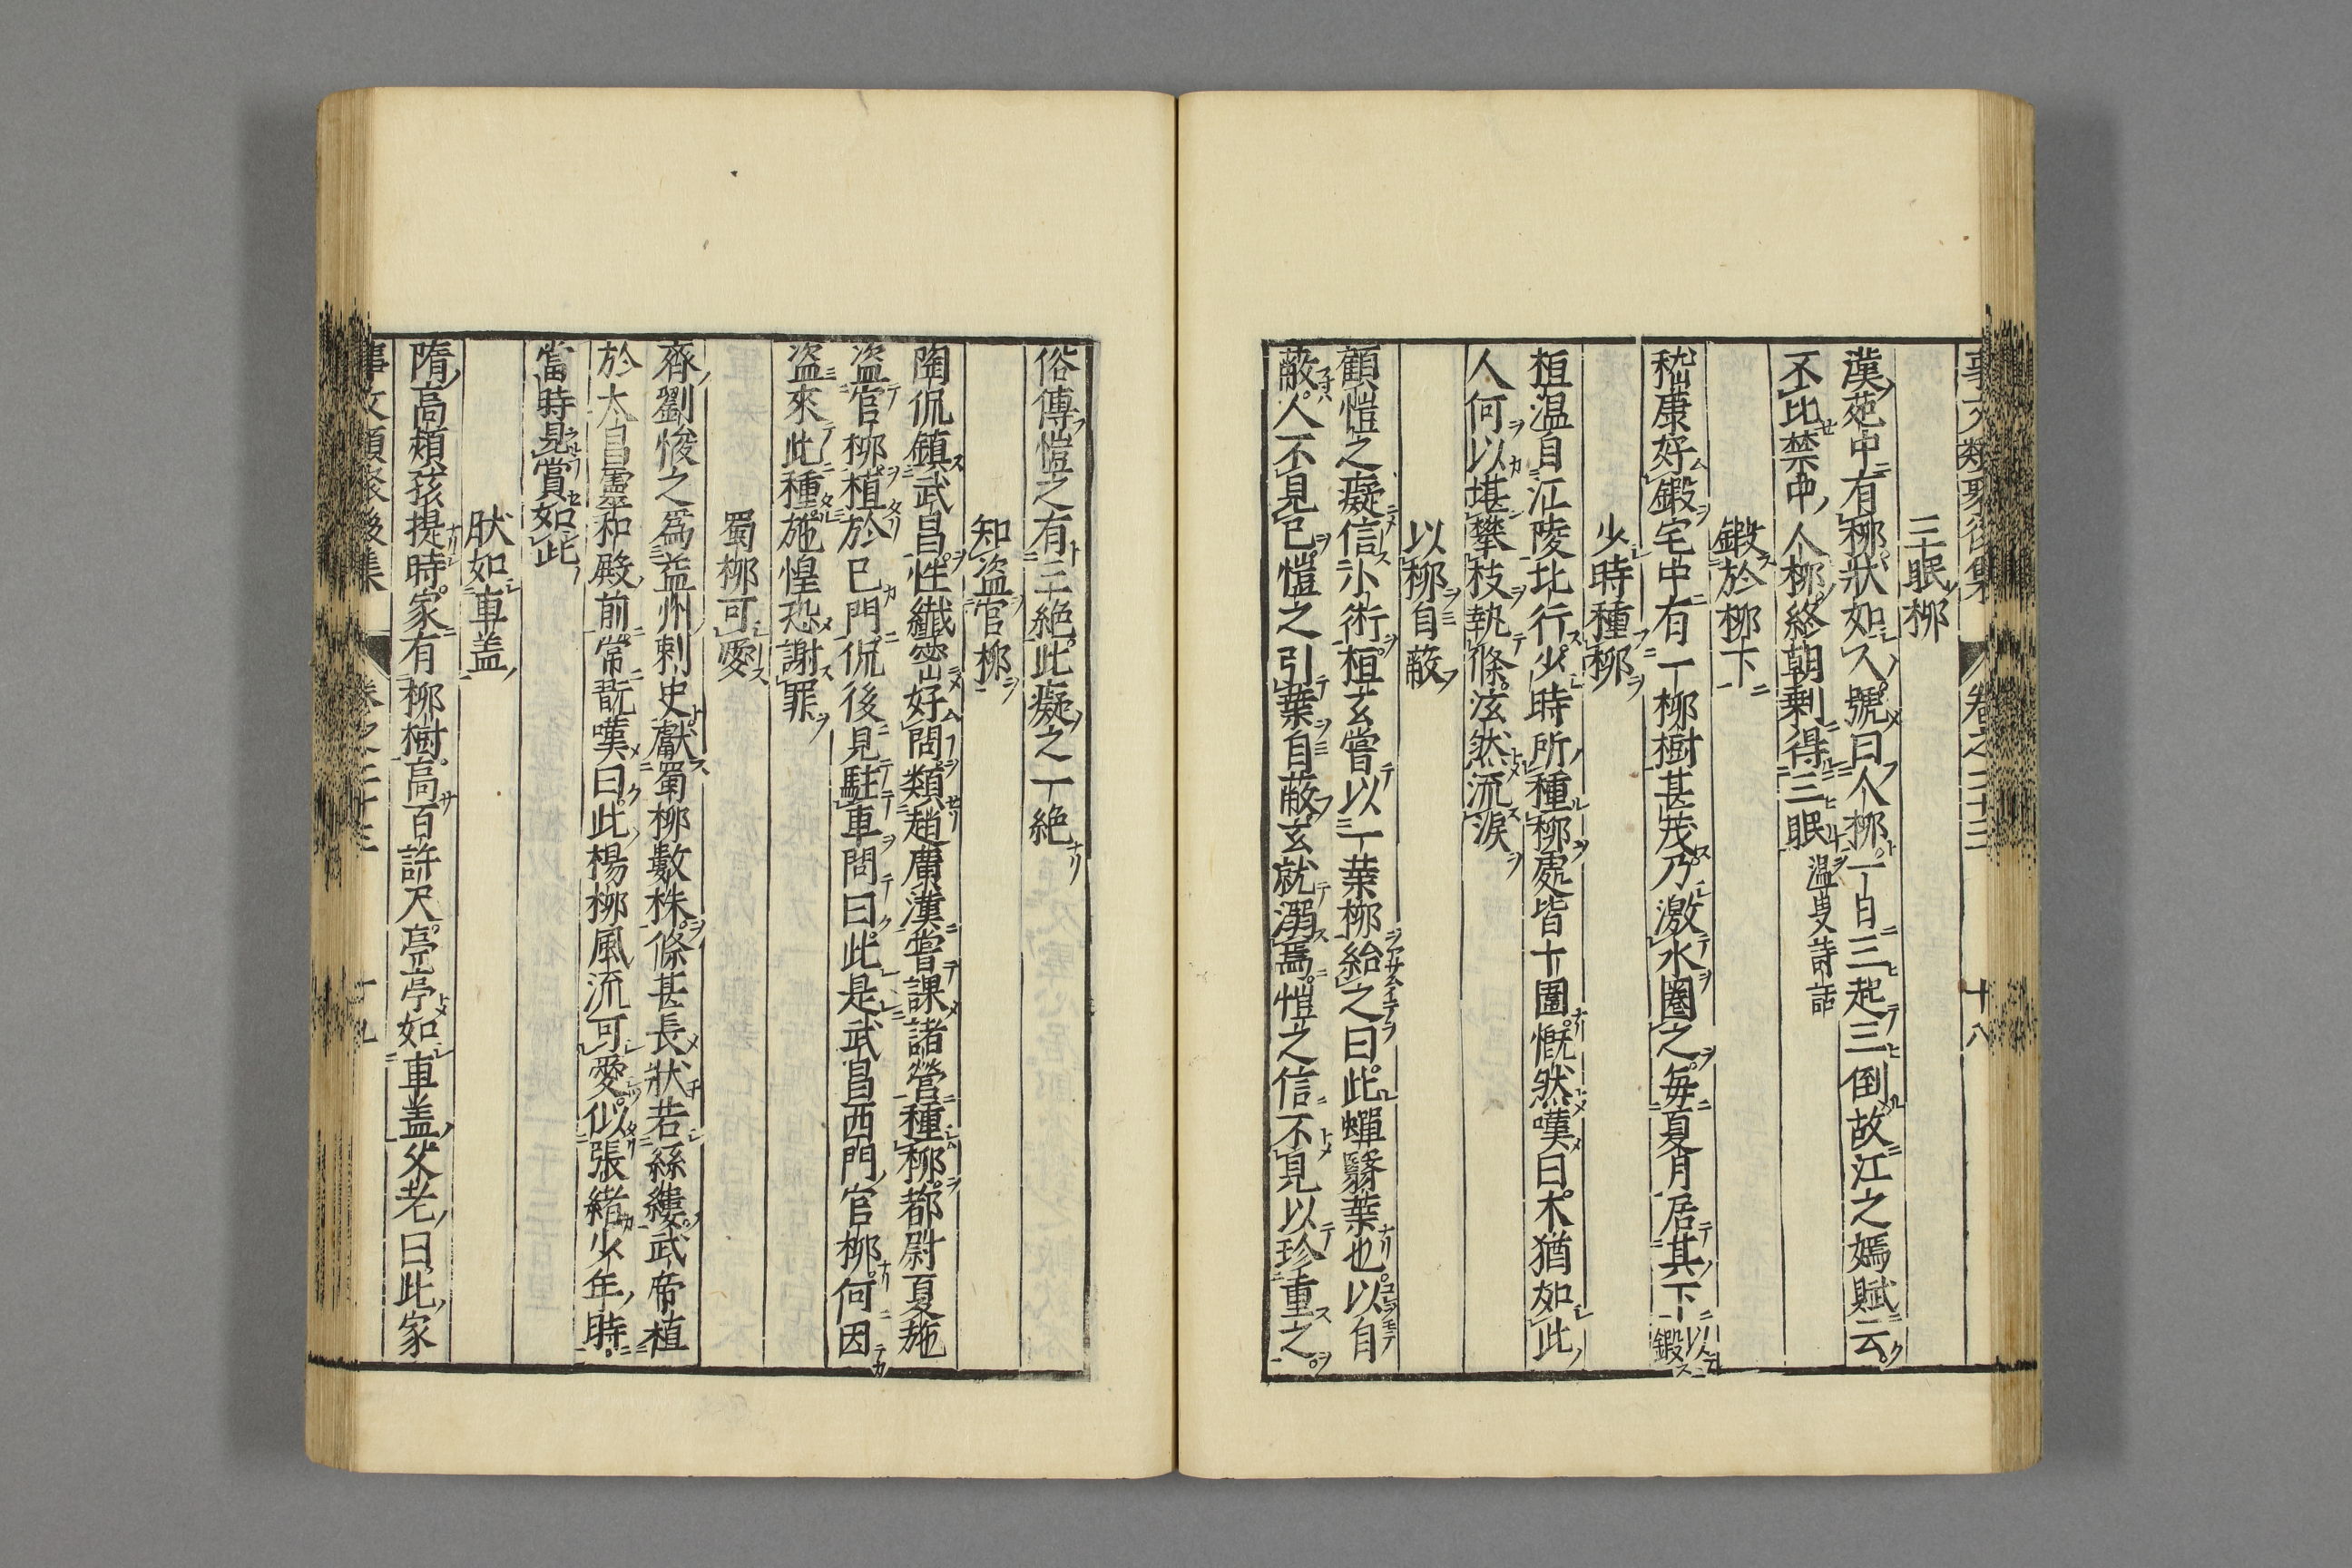 事文類聚後集 卷之二十三 十八
三眠柳
漢苑中有柳狀如人號曰人柳一日三起三倒故江之嫣賦云
不比禁中人柳終朝剰得三眠 温叟詩話
鍛於柳下
嵇康好鍛宅中有一柳樹甚茂乃激水圏之毎夏月居其下以鍛
少時種柳
桓温自江陵北行少時所種柳處皆十圍慨然嘆曰木猶如此
人何以堪攀枝執條泫然流淚
以柳自蔽
顧愷之癡信小術桓玄嘗以一葉柳紿之曰此蟬翳葉也以自
蔽人不見己愷之引葉自蔽玄就溺焉愷之信不見以珍重之
俗傳愷之有三絶此癡之一絶
知盗官柳
陶侃鎮武昌性纎密好問類趙廣漢嘗課諸營種柳都尉夏施
盗官柳植於己門侃後見駐車問曰此是武昌西門官柳何因
盗來此種施惶恐謝罪
蜀柳可愛
齊劉悛之爲益州刺史獻蜀柳數株條甚長狀若絲縷武帝植
於太昌靈和殿前常翫嘆曰此楊柳風流可愛似張緒少年時
當時見賞如此
狀如車盖
隋高熲孩提時家有柳樹高百許尺亭亭如車盖父老曰此家
事文類聚後集 卷之二十三 十九